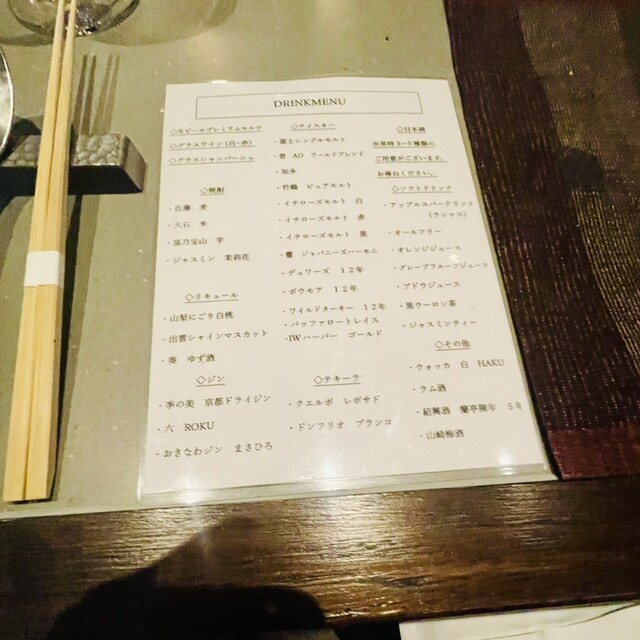 DRINKMENU
◇生ビールプレミアムモルツ
◇グラスワイン(白・赤)
◇グラスシャンパーニュ
◇焼酎
・佐藤 麦
・大石 米
・富乃宝山 芋
・ジャスミン 茉莉花
◇リキュール
・山梨にごり白桃
・出雲シャインマスカット
・奏 ゆず酒
◇ジン
・季の美 京都ドライジン
・六 ROKU
・おきなわジン まさひろ
◇ウイスキー
・富士シングルモルト
・碧 AO ワールドブレンド
・知多
・竹鶴 ピュアモルト
・イチローズモルト 白
・イチローズモルト 赤
・イチローズモルト 黒
・響 ジャパニーズハーモニ
・デュワーズ 12年
・ボウモア 12年
・ワイルドターキー 12年
・バッファロートレイス
・IWハーパー ゴールド
◇テキーラ
・クエルボ レポサド
・ドンフリオ ブランコ
◇日本酒
※常時3~5種類の
ご用意がございます。
お尋ねください。
◇ソフトドリンク
・アップルスパークリンク
(ラシャス)
・オールフリー
・オレンジジュース
・グレープフルーツジュース
・ブドウジュース
・黒ウーロン茶
・ジャスミンティー
◇その他
・ウォッカ 白 HAKU
・ラム酒
・紹興酒 蘭亭陳年 5年
・山崎梅酒